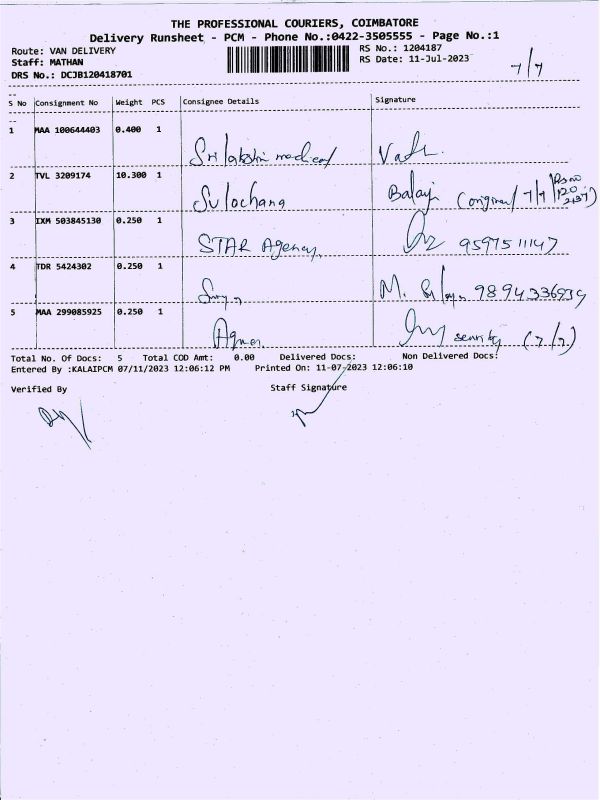 THE PROFESSIONAL COURIERS, COIMBATORE
Delivery Runsheet - PCM - Phone No.:0422-3505555 - Page No.:1
Route: VAN DELIVERY RS No.: 1204187
Staff: MATHAN RS Date: 11-Jul-2023
DRS No.: DCJB120418701 7/7
S No Consignment No Weight PCS Consignee Details Signature
1 MAA 100644403 0.400 1
Sri lakshmi medical
2 TVL 3209174 10.300 1
Sulochana Balaji (original 7/7
3 IXM 503845130 0.250 1
STAR Agency 9597511147
4 TDR 5424302 0.250 1
M. 9894336934
5 MAA 299085925 0.250 1
security (7/7)
Total No. Of Docs: 5 Total COD Amt: 0.00 Delivered Docs: Non Delivered Docs:
Entered By :KALAIPCM 07/11/2023 12:06:12 PM Printed On: 11-07-2023 12:06:10
Verified By Staff Signature